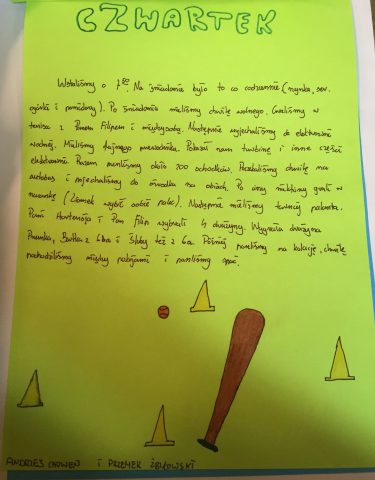 CZWARTEK
Wstaliśmy o 7:00. Na śniadanie było to co codziennie (szynka, ser,
ogórki i pomidory). Po śniadaniu mieliśmy chwilę wolnego. Graliśmy w
tenisa z Panem Filipem i między sobą. Następnie wyjechaliśmy do elektrowni
wodnej. Mieliśmy fajnego przewodnika. Pokazał nam turbinę i inne części
elektrowni. Razem około 700 schodków. Poczekaliśmy chwilę na
autobus i pojechaliśmy do ośrodka na obiad. Po ciszy graliśmy w
(Ziomek wybił sobie palec). Następnie mieliśmy turniej palanta.
Pani Hortensja i Pan Filip wybierali 4 drużyny. Wygrała drużyna
Bartka z 6ba i też z 6a. Później poszliśmy na kolację, chwilę
pochodziliśmy między pokojami i poszliśmy spać.
ANDRZEJ I PRZEMEK ŻBIKOWSKI